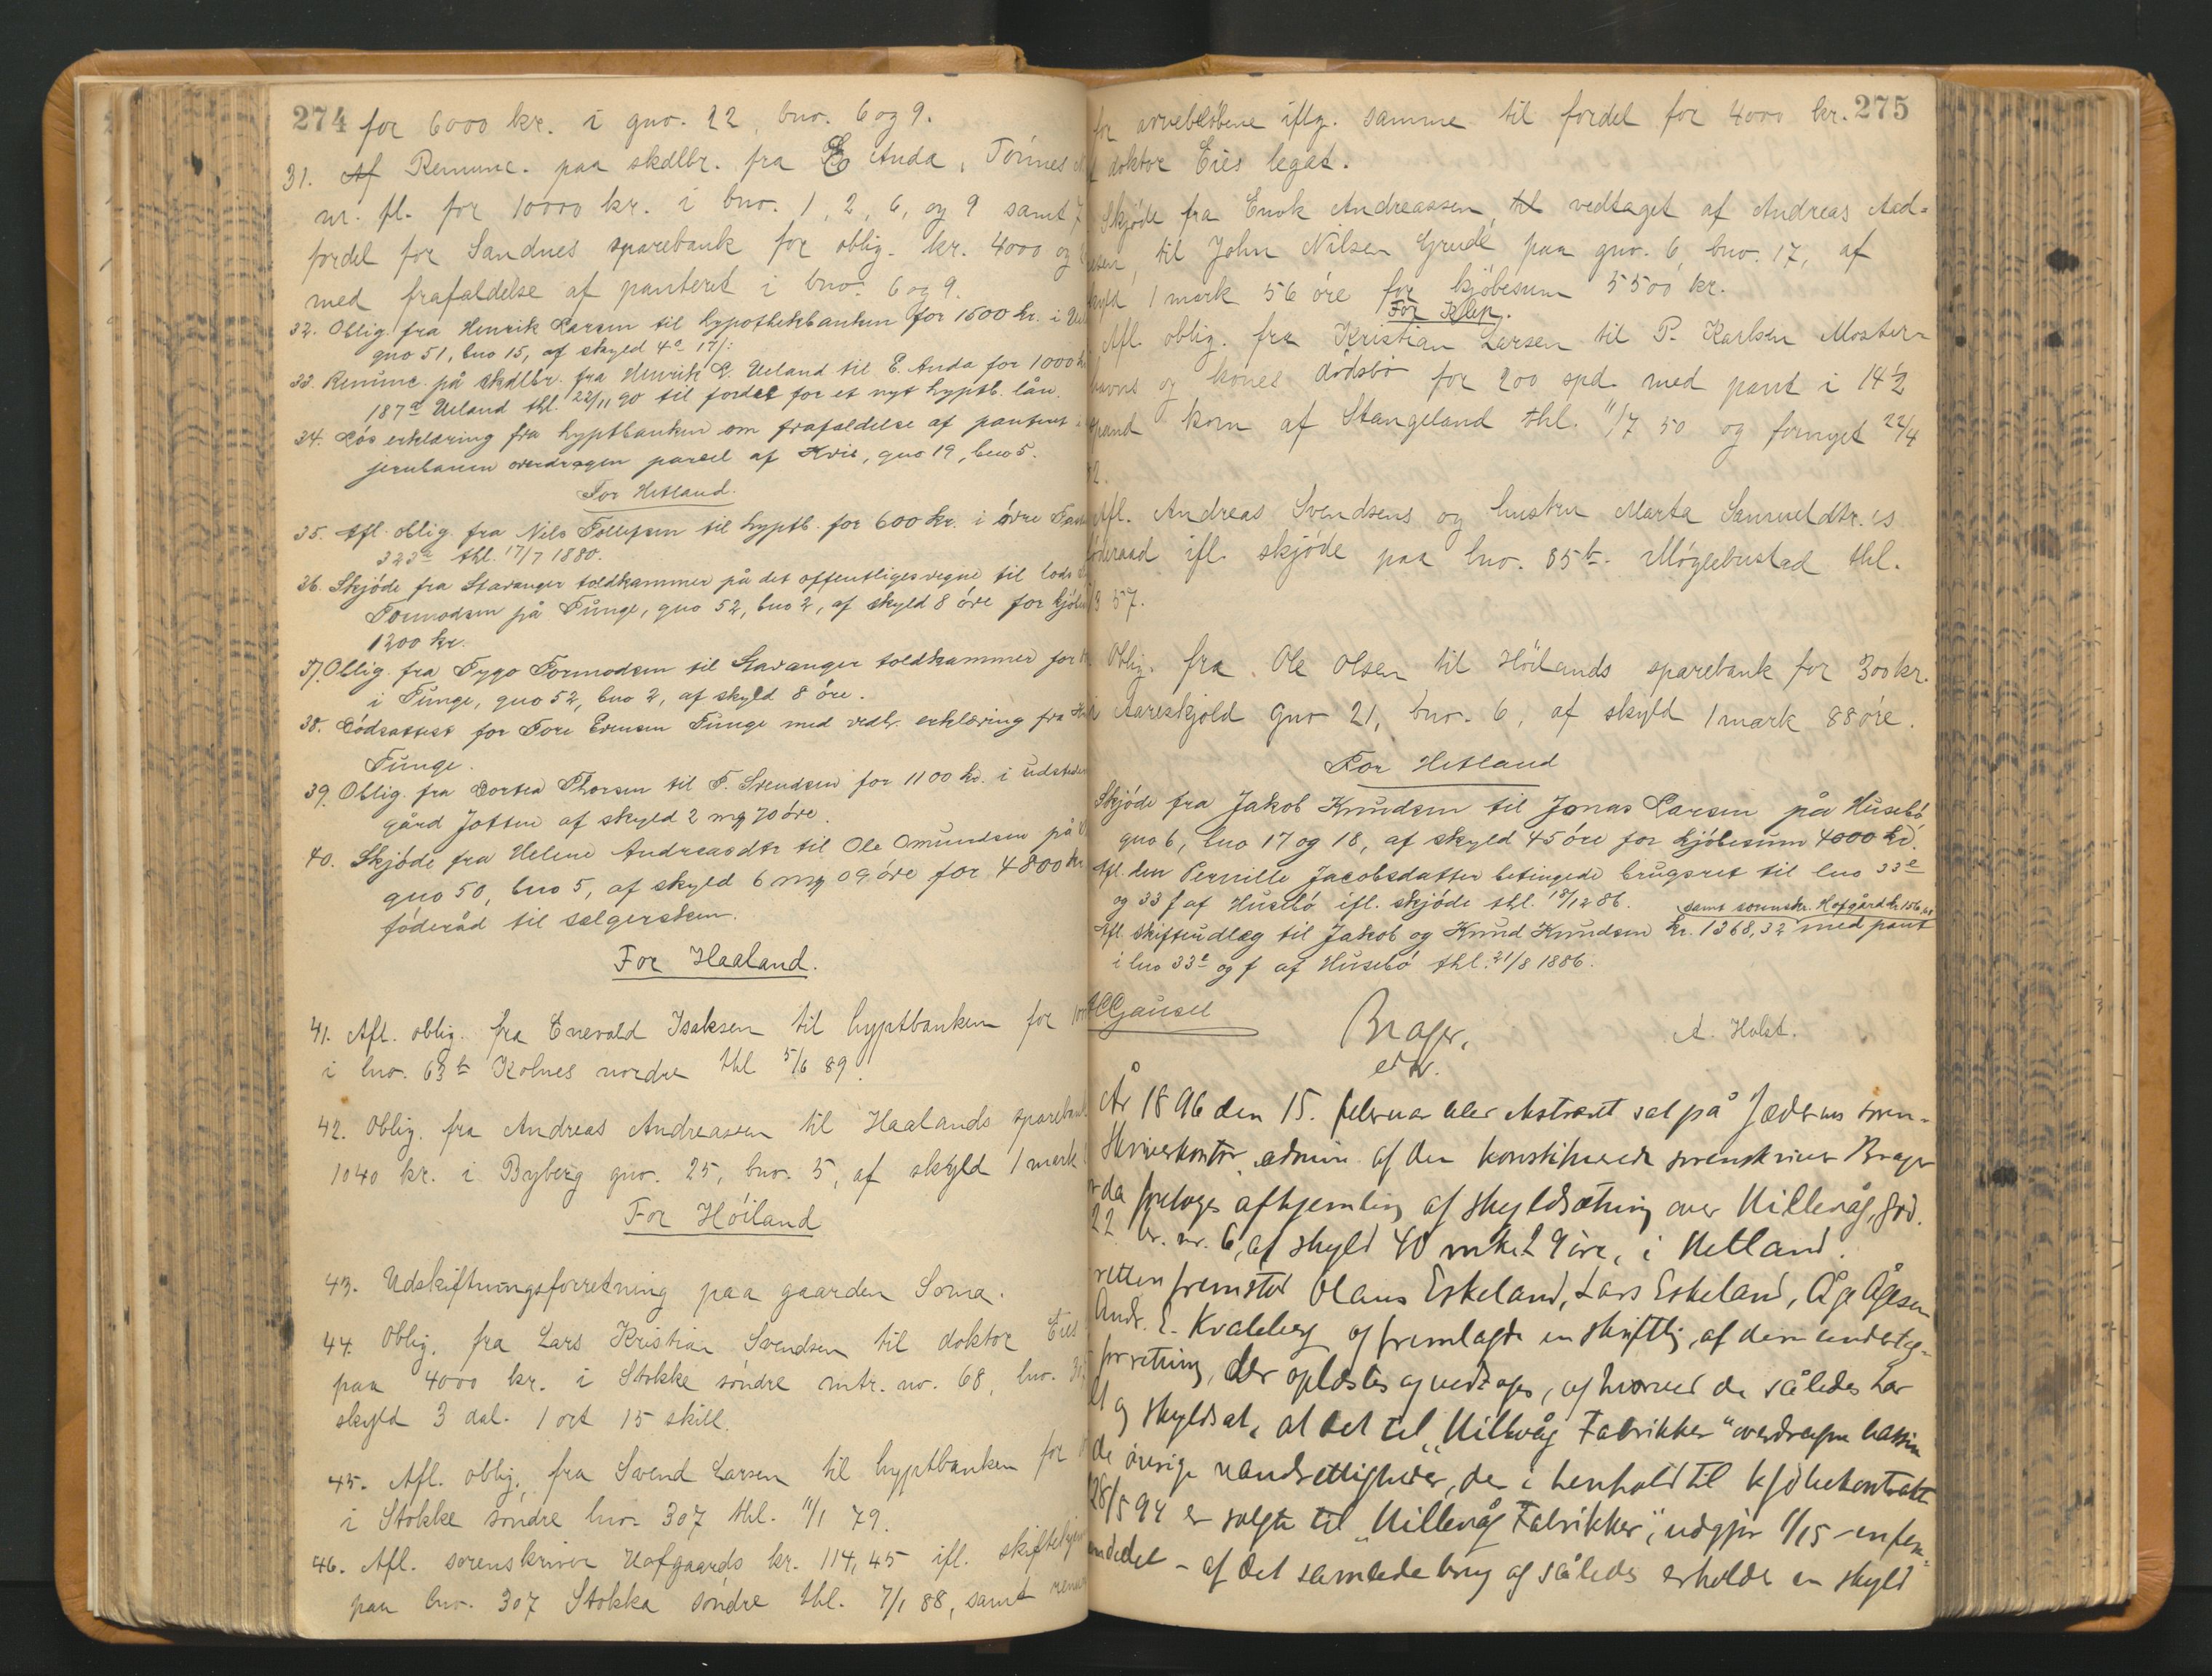 274 for 6000 kr. i gno. 22, bno. 6 og 9.
31. Af Renunc. paa skdlbr. fra E Anda, Tønnes
m. fl. for 10000 kr. i bno. 1, 2, 6, og 9 samt 7
fordel for Sandnes sparebank for oblig. kr. 4000 og
med frafaldelse af panteret i bno. 6 og 9.
32. Oblig. fra Henrik Larsen til hypothekbanken for 1600 kr. i
gno 51, bno 15, af skyld
33. Renunc. på skdlbr. fra Henrik L. Ueland til E. Anda for 1000
187a Ueland thl. 22/11 90 til fordel for et nyt hyptb. lån.
34. Løserklæring fra hyptbanken om frafaldelse af panteret
jernbanen overdragen parcel af Kvie, gno 19, bno 5.
For Hetland.
35. Afl. oblig. fra Nils Tollefsen til hyptb. for 600 kr. i øvre
323a thl. 17/7 1880.
36. Skjøde fra Stavanger toldkammer på det offentliges vegne til lods
Tormodsen på Tunge, gno 52, bno 2, af skyld 8 øre for kjøbes
1200 kr.
37. Oblig. fra Tygo Tormodsen til Stavanger toldkammer for
i Tunge, gno 52, bno 2, af skyld 8 øre.
38. Dødsattest for Tore Evensen Tunge med vedh. erklæring fra
Tunge.
39. Oblig. fra Dortea Thorsen til T. Svendsen for 1100 kr. i
gård Jotten af skyld 2 mrk 70 øre.
40. Skjøde fra Helene Andreasdtr til Ole Omundsen på
gno 50, bno 5, af skyld 6 mrk 09 øre for 4800 kr
føderåd til sælgersken.
For Haaland.
41. Afl. oblig. fra Enevald Isaksen til hyptbanken for
i lno. 63b Kolnes nordre thl 5/6 89.
42. Oblig. fra Andreas Andreassen til Haalands spareban
1040 kr. i Byberg gno. 25, bno. 5, af skyld 1 mark
For Høiland
43. Udskiftningsforretning paa gaarden Soma.
44. Oblig. fra Lars Kristian Svendsen til doktor Eies
paa 4000 kr. i Stokke søndre mtr. no. 68, lno.
skyld 3 dal. 1 ort 15 skill.
45. Afl. oblig. fra Svend Larsen til hyptbanken for
i Stokke søndre lno. 307 thl. 11/1 79.
46. Afl. sorenskriver Hofgaards kr. 114,45 ifl. skiftebrev
paa lno. 307 Stokka søndre thl. 7/1 88, samt
for arvebeløbene iflg. samme til fordel for 4000 kr. 275
doktor Eies legat.
Skjøde fra Enok Andreassen, til vedtaget af Andreas Aad-
nesen, til John Nilsen Grude paa gno. 6, bno. 17, af
skyld 1 mark 56 øre for kjøbesum 5500 kr.
For Klep.
Afl. oblig. fra Kristian Larsen til P. Karlsen Moster-
havns og kones dødsbo for 200 spd. med pant i 14 1/2
spand korn af Stangeland thl. 11/7 50 og fornyet 22/4
Afl. Andreas Svendsens og hustru Marta Samueldtr.es
føderaad ifl. skjøde paa lno. 85b. Møglebustad thl.
57.
Oblig. fra Ole Olsen til Høilands sparebank for 300 kr.
i Aareskjold gno 21, bno. 6, af skyld 1 mark 88 øre.
For Hetland
Skjøde fra Jakob Knudsen til Jonas Larsen på Husebø
gno 6, bno 17 og 18, af skyld 45 øre for kjøbesum 4000 kr.
Afl. den Pernille Jacobsdatter betingede brugsret til lno 33e
og 33 f af Husebø ifl. skjøde thl. 18/12 86.
samt sorenskr. Hofgård kr. 156,
Afl. skifteudlæg til Jakob og Knud Knudsen kr. 1368,32 med pant
i lno 33e og f af Husebø thl. 21/8 1886.
Gausel
Brager,
A. Holst.
År 1896 den 15. februar blev ekstraret sat på Jæderens soren-
skriverkontor, admin. af den konstituerede sorenskriver Brager
da foretoges afhjemling af skyldsætning over Hillevåg, grd.
22 br. nr. 6, af skyld 40 mrk. 29 øre, i Hetland.
retten fremstod Olaus Eskeland, Lars Eskeland, Åge Ågesen
Andr. E. Kvaleberg og fremlagde en skriftlig, af dem
forretning, der oplæstes og vedtoges, og hvorved de således har
og skyldsat, at det til "Hillevåg Fabrikker" overdragne bassin
de øvrige vandrettigheder, der i henhold til kjøbekontrakt
28/5 94 er solgte til "Hillevåg Fabrikker", udgjør 1/15 - en fem-
tendedel - af det samlede brug og således erholder en skyld